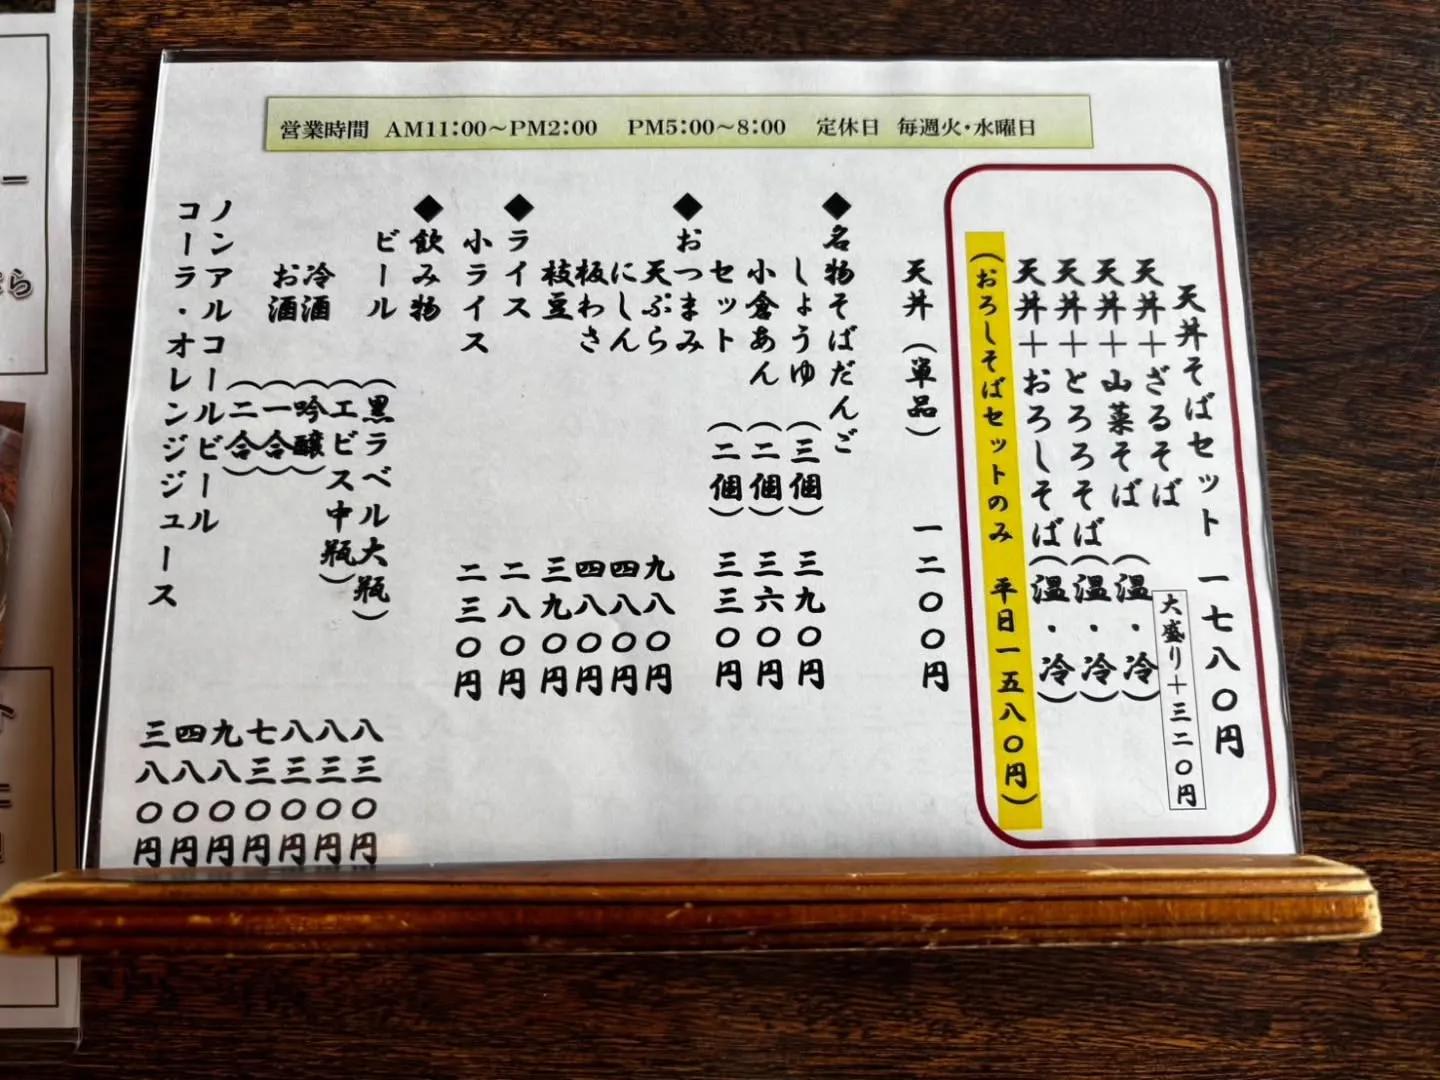 営業時間 AM11:00～PM2:00 PM5:00～8:00 定休日 毎週火・水曜日
天丼そばセット 一七八〇円
大盛り＋三二〇円
天丼＋ざるそば
天丼＋山菜そば（温・冷）
天丼＋とろろそば（温・冷）
天丼＋おろしそば（温・冷）
（おろしそばセットのみ 平日一五八〇円）
天丼（単品） 一二〇〇円
◆名物そばだんご
しょうゆ（三個） 三九〇円
小倉あん（二個） 三六〇円
セット（二個） 三三〇円
◆おつまみ
天ぷら 九八〇円
にしん 四八〇円
板わさ 四八〇円
枝豆 三九〇円
◆ライス 二八〇円
小ライス 二三〇円
◆飲み物
ビール（黒ラベル大瓶） 八三〇円
（エビス中瓶） 八三〇円
冷酒（吟醸） 八三〇円
お酒（一合） 七三〇円
（二合） 九八〇円
ノンアルコールビール 四八〇円
コーラ・オレンジジュース 三八〇円